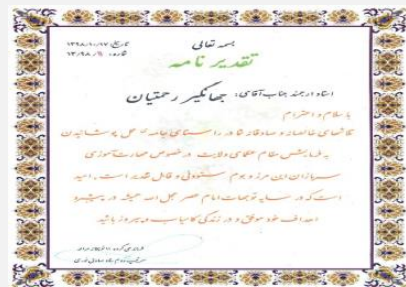 بسمه تعالی
تاریخ: ۱۳۹۸/۱۰/۱۷
تقدیر نامه
استاد ارجمند جناب آقای: جهانگیر رحمتیان
با سلام و احترام
تلاشهای خالصانه و صادقانه شما در راستای جامه عمل پوشانیدن
به فرمایش مقام عظمای ولایت در خصوص مهارت آموزی
سربازان این مرز و بوم ستودنی و قابل تقدیر است. امید
است که در سایه توجهات امام عصر عجل الله همیشه در پیشبرد
اهداف خود موفق و در زندگی کامیاب و پیروز باشید